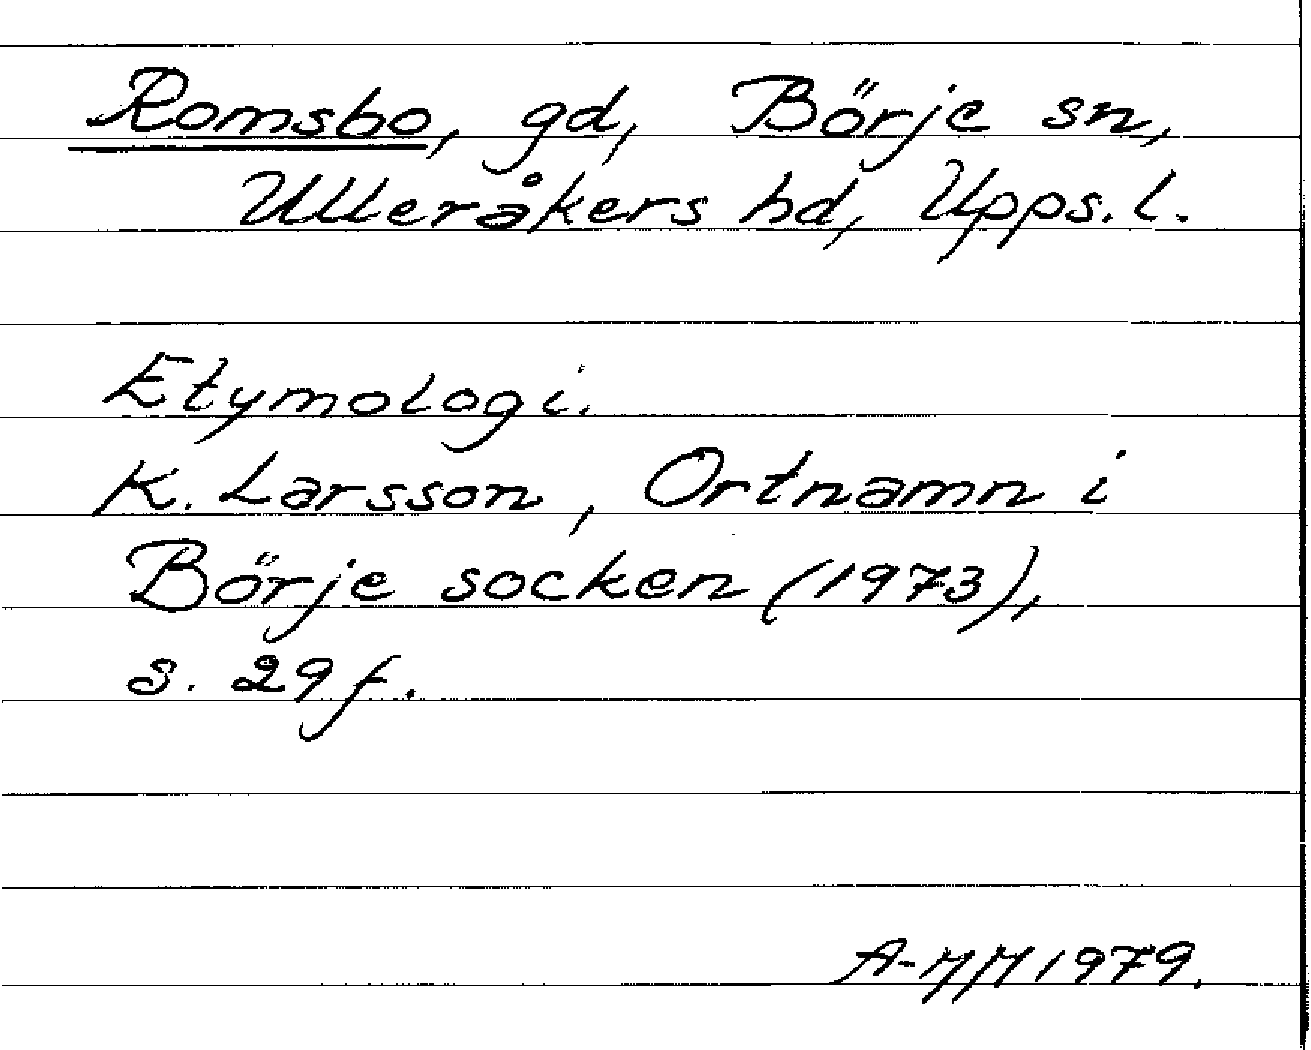 Romsbo, gd, Börje sn,
Ulleråkers hd, Upps. l.
Etymologi.
K. Larsson, Ortnamn i
Börje socken (1973),
s. 29 f.
A-MM 1979.